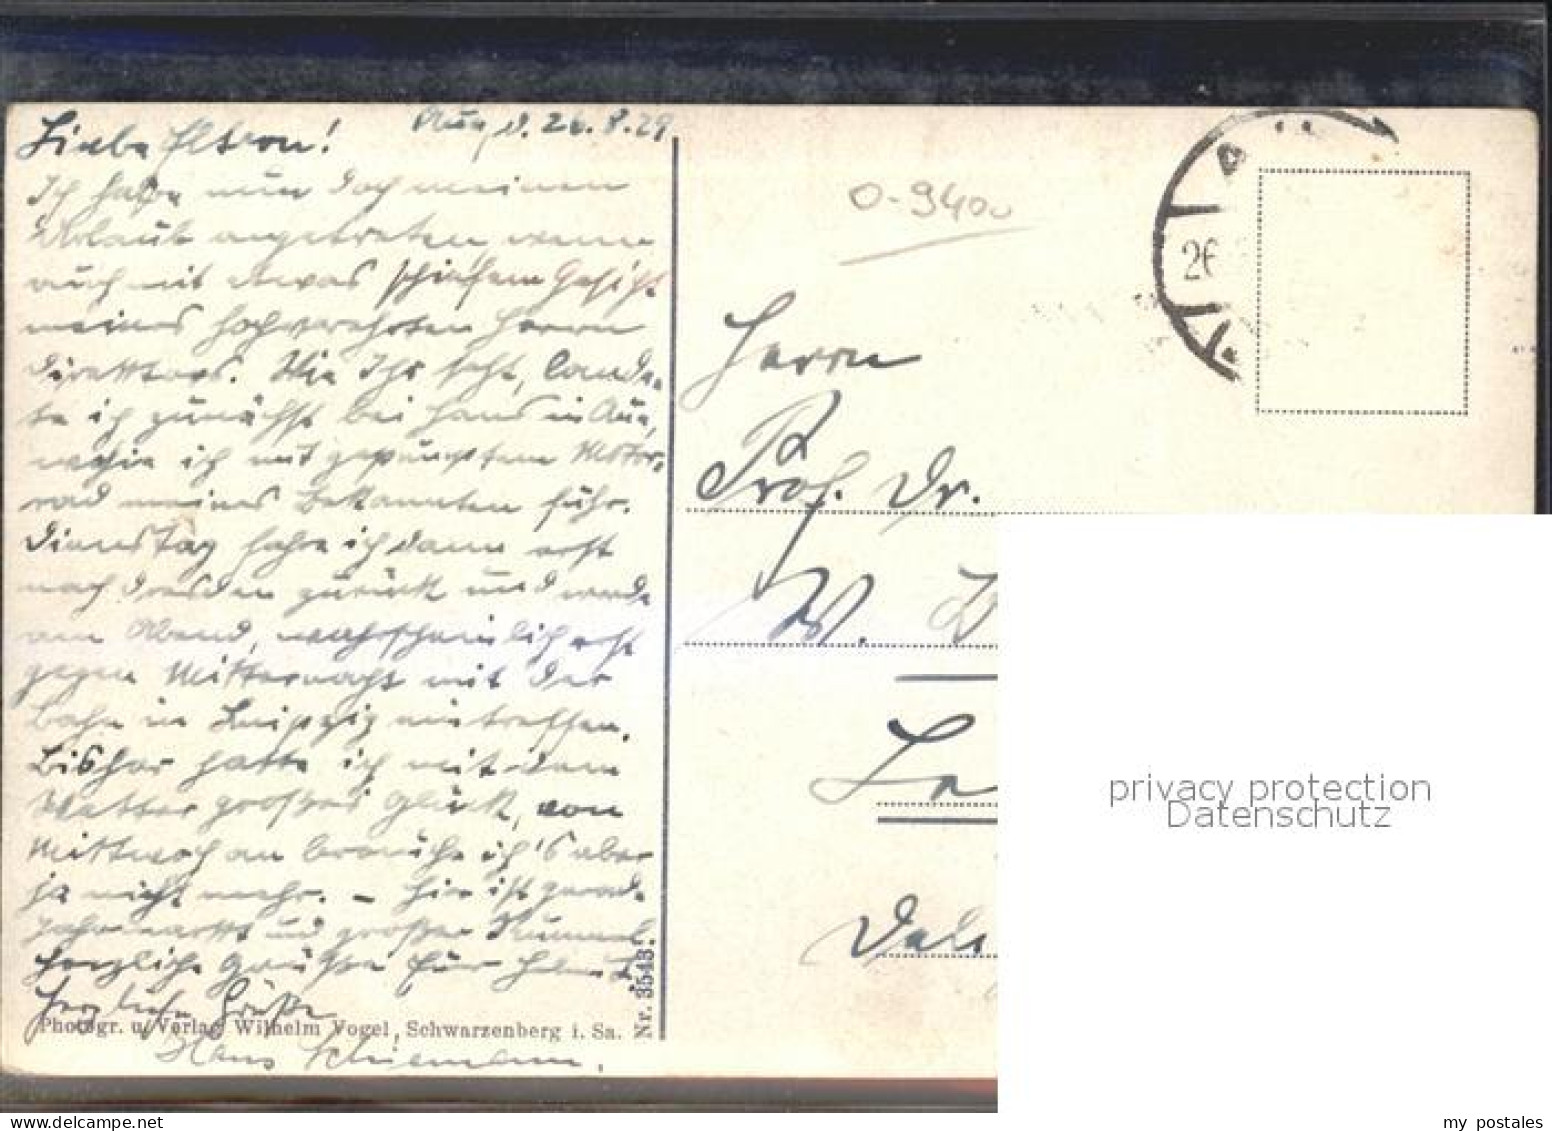 Aue, d. 26.8.29.
Liebe Eltern!
Ich habe nun doch meinen
Urlaub angetreten wenn
auch mit etwas schiefem Gesicht
meines hochverehrten Herrn
Direktors. Wie Ihr seht, lande-
te ich zunächst bei Hans in Aue,
wohin ich mit gepumptem Motor-
rad meines Bekannten fuhr.
Dienstag fahre ich dann erst
nach Dresden zurück und werde
am Abend, wahrscheinlich erst
gegen Mitternacht mit der
Bahn in Leipzig eintreffen.
Bisher hatte ich mit dem
Wetter großes Glück, von
Mittwoch an brauche ich's aber
ja nicht mehr. – Hier ist gerade
Jahrmarkt und großer Rummel.
Herzliche Grüße Euer Helmut.
Herzliche Grüße
Hans Schiemann.
Photogr. u. Verlag Wilhelm Vogel, Schwarzenberg i. Sa.
Nr. 3543
0-9400
26
Herrn
Prof. Dr.
W.
privacy protection
Datenschutz
my postales